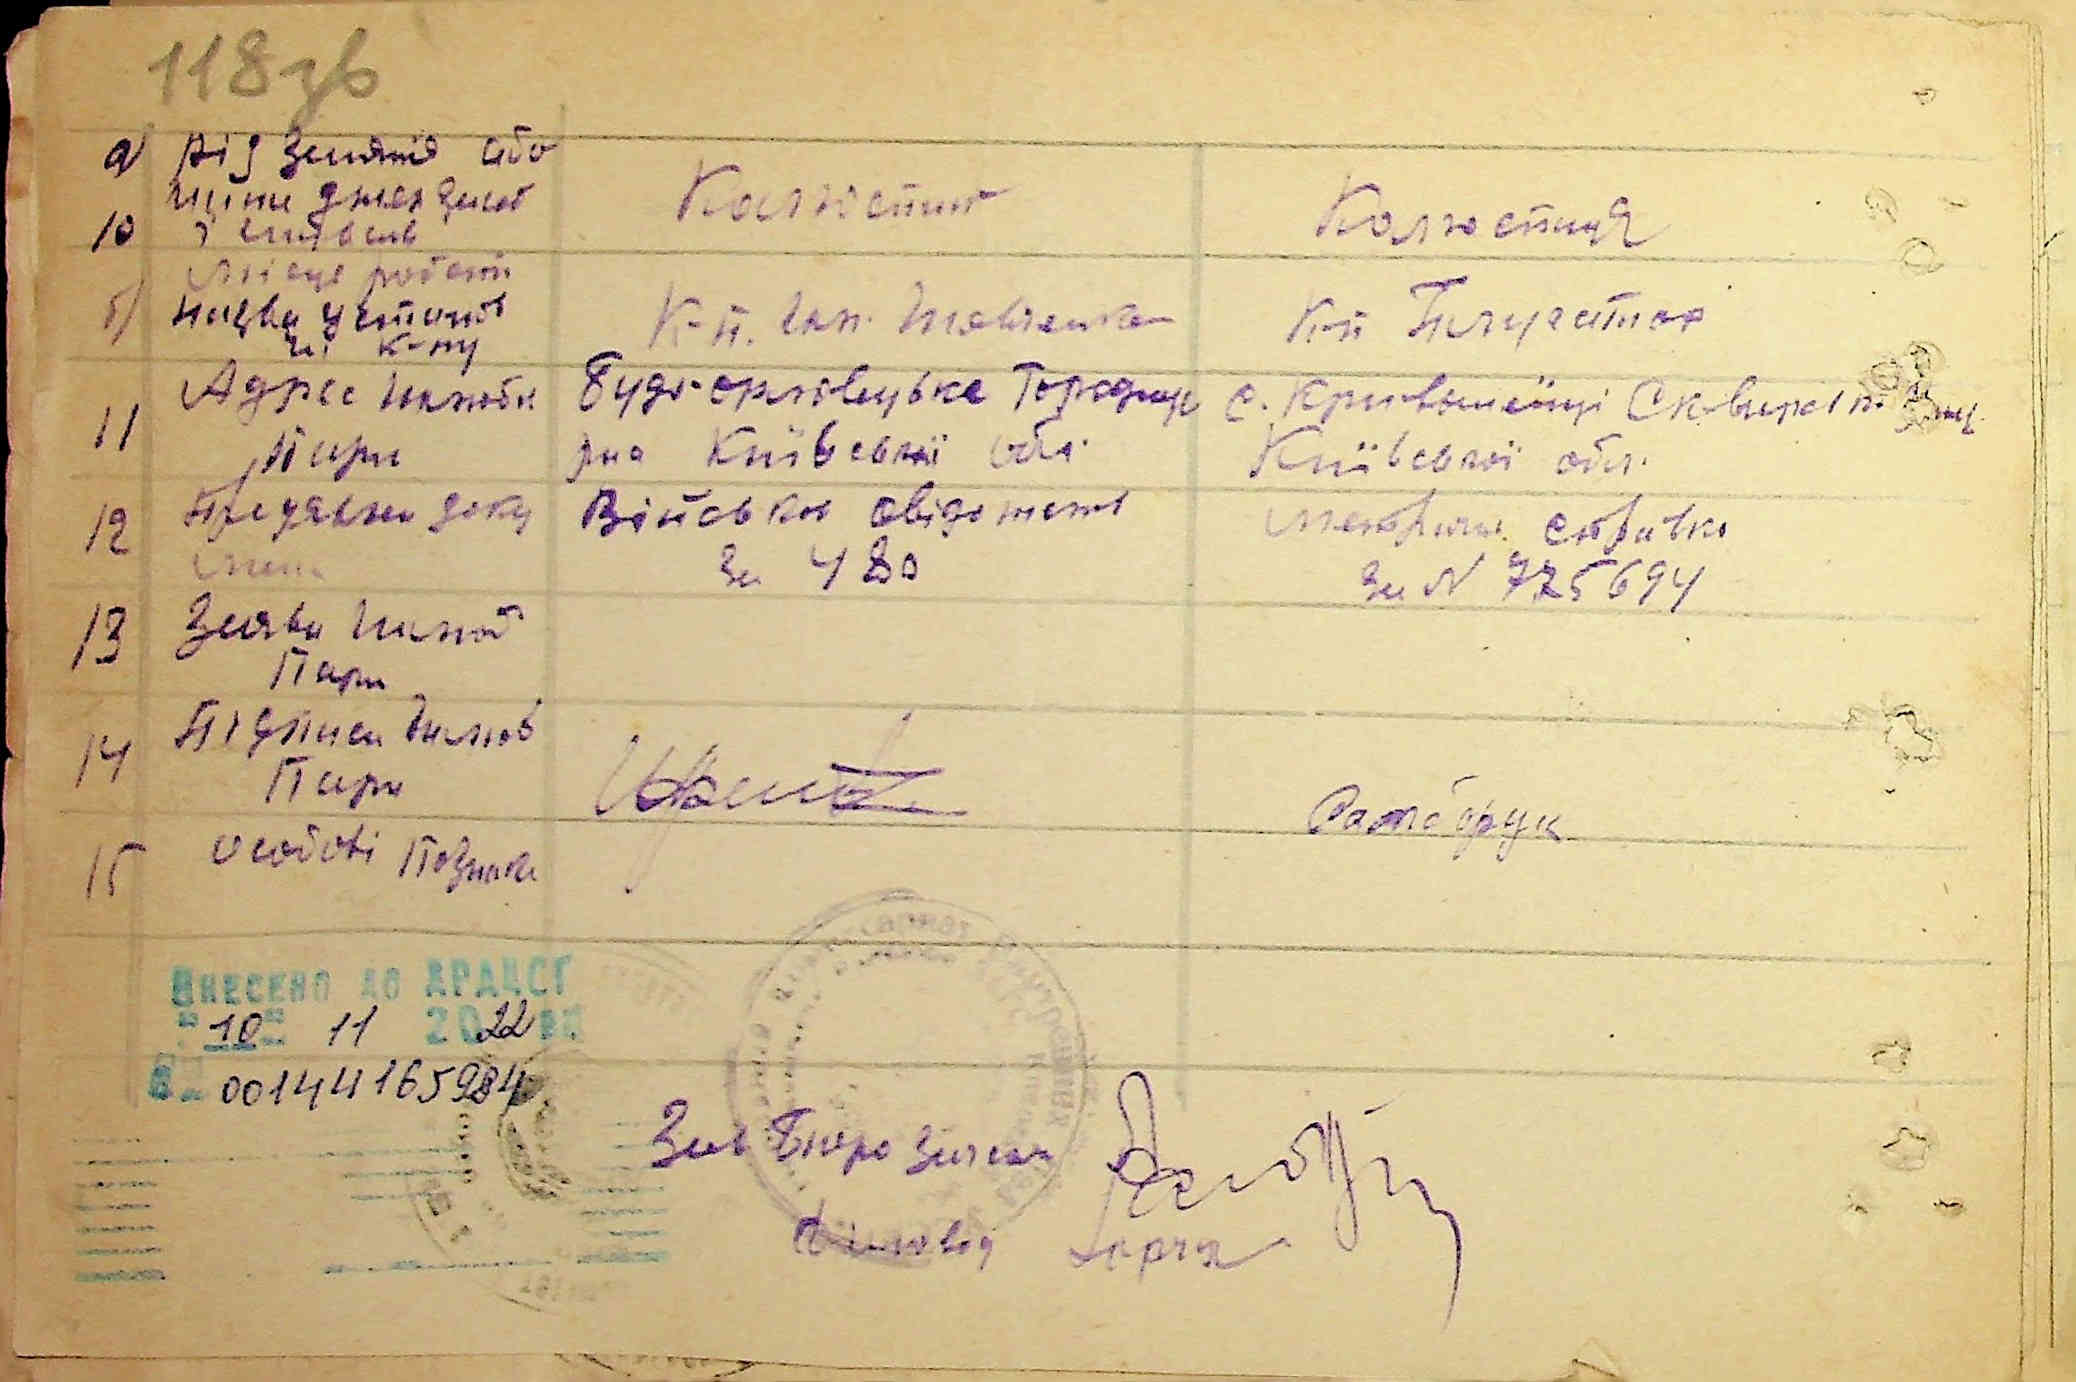 118 зв
а) Рід заняття або
10 інше джерело
існування
Колгоспник
Колгоспниця
Місце роботи
б) назва установ
чи к-пу
К-п. Ім. Шевченка
К-п
11 Адреса шлюбн
пари
Будо-орловецьке Городищ
р-на Київської обл.
с. Кривошеїнці Сквирськ
Київської обл.
12 Предявлені доку
мент
Військов свідоцтво
За 480
Метрична справка
За N 775694
13 Заява шлюб
Пари
14 Підписи шлюб
Пари
15 Особові Познаки
ВНЕСЕНО ДО ДРАЦСГ
"10" 11 2022 р.
00144165984
Зав Бюро Загсом
Діловод